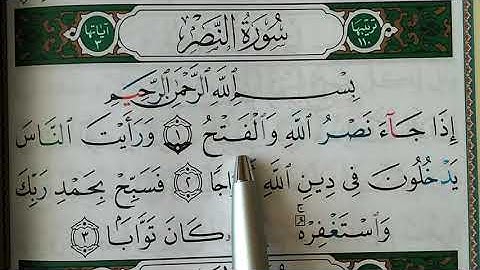 ترتيبها ١١٠ سُورَةُ النَّصْرِ آياتها ٣
بِسْمِ ٱللَّهِ ٱلرَّحْمَٰنِ ٱلرَّحِيمِ
إِذَا جَآءَ نَصْرُ ٱللَّهِ وَٱلْفَتْحُ ١ وَرَأَيْتَ ٱلنَّاسَ
يَدْخُلُونَ فِى دِينِ ٱللَّهِ ٢ فَسَبِّحْ بِحَمْدِ رَبِّكَ
وَٱسْتَغْفِرْهُ كَانَ تَوَّابًۢا ٣